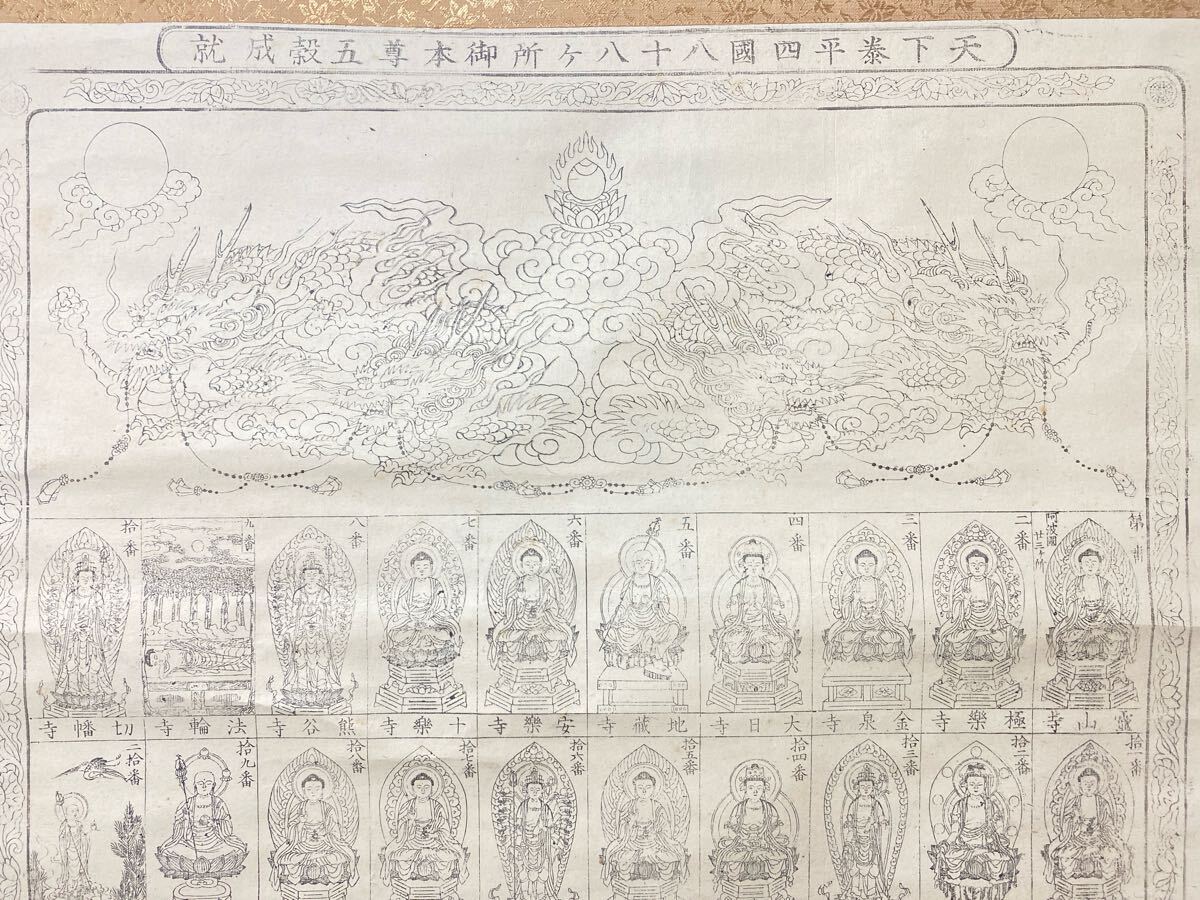 天下泰平四國八十八ヶ所御本尊五穀成就
第
阿波國
二番
三番
四番
五番
六番
七番
八番
九番
拾番
靈山寺
極樂寺
金泉寺
大日寺
地蔵寺
安樂寺
十樂寺
熊谷寺
法輪寺
切幡寺
拾一番
拾二番
拾三番
拾四番
拾五番
拾六番
拾七番
拾八番
拾九番
二拾番